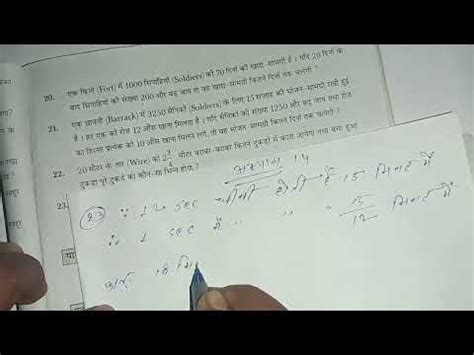 20. एक किले (Fort) में 1000 सिपाहियों (Soldiers) की 70 दिनों की खाद्य-सामग्री है। यदि 20 दिनों के
बाद सिपाहियों की संख्या 200 और बढ़ जाय तो वह खाद्य-सामग्री कितने दिनों तक चलेगी?
21. एक छावनी (Barrack) में 3250 सैनिकों (Soldiers) के लिए 15 सप्ताह की भोजन-सामग्री रखी हुई
है। हर एक को रोज 12 औंस खाना मिलता है। यदि सैनिकों की संख्या 1250 और बढ़ जाय तथा रोज
का हिस्सा प्रत्येक को 10 औंस खाना मिलने लगे, तो वह भोजन-सामग्री कितने दिनों तक चलेगी?
22. 20 मीटर के तार (Wire) को 3/4 मीटर बराबर-बराबर कितने टुकड़ों में काटा जायगा तथा बचा हुआ
टुकड़ा पूरे टुकड़े का कौन-सा भिन्न होगा?
23.
अध्याय 14
23 ∵ 12 sec चीनी होती है 15 मिनट में
∴ 1 sec में " " " 15/12 मिनट में
अतः 18 मि